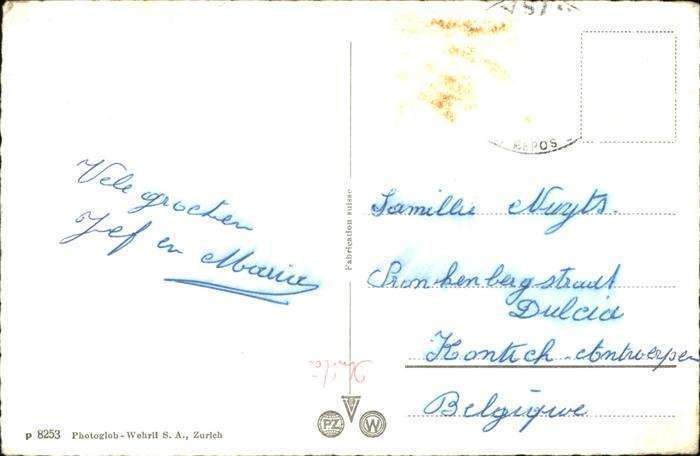 Vele groeten
Jef en Maria
p 8253 Photoglob - Wehrli S. A., Zurich
Fabrication suisse
REPOS
Familie Nuyts.
Pronkenbergstraat
Dulcia
Kontich - Antwerpen
Belgique
PZ
W